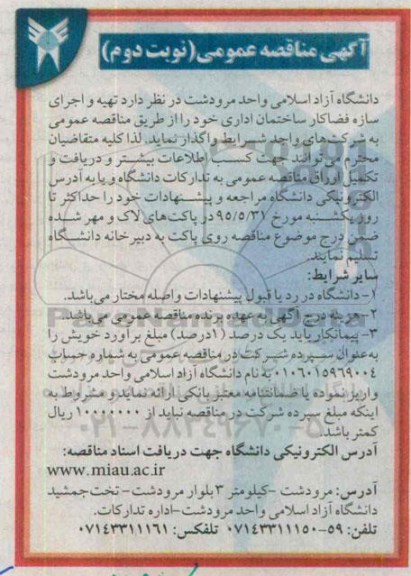 آگهی مناقصه عمومی (نوبت دوم)
دانشگاه آزاد اسلامی واحد مرودشت در نظر دارد تهیه و اجرای
سازه فضاکار ساختمان اداری خود را از طریق مناقصه عمومی
به شرکت‌های واجد شرایط واگذار نماید. لذا کلیه متقاضیان
محترم می‌توانند جهت کسب اطلاعات بیشتر و دریافت و
تکمیل اوراق مناقصه عمومی به تدارکات دانشگاه و یا به آدرس
الکترونیکی دانشگاه مراجعه و پیشنهادات خود را حداکثر تا
روز یکشنبه مورخ ۹۵/۵/۳۱ در پاکت‌های لاک و مهر شده
ضمن درج موضوع مناقصه روی پاکت به دبیرخانه دانشگاه
تسلیم نمایند.
سایر شرایط:
۱- دانشگاه در رد یا قبول پیشنهادات واصله مختار می‌باشد.
۲- هزینه درج آگهی به عهده برنده مناقصه عمومی می‌باشد.
۳- پیمانکار باید یک درصد (۱درصد) مبلغ برآورد خویش را
به‌عنوان سپرده شرکت در مناقصه عمومی به شماره حساب
۰۱۰۶۰۱۵۹۶۹۰۰۴ به نام دانشگاه آزاد اسلامی واحد مرودشت
واریز نموده یا ضمانتنامه معتبر بانکی ارائه نماید و مشروط به
اینکه مبلغ سپرده شرکت در مناقصه نباید از ۱۰۰۰۰۰۰۰ ریال
کمتر باشد.
۰۲۱-۸۸۳۴۹۶۷۰-۵
آدرس الکترونیکی دانشگاه جهت دریافت اسناد مناقصه:
www.miau.ac.ir
آدرس: مرودشت -کیلومتر ۳ بلوار مرودشت- تخت جمشید
دانشگاه آزاد اسلامی واحد مرودشت-اداره تدارکات.
تلفن: ۵۹-۰۷۱۴۳۳۱۱۱۵۰ تلفکس: ۰۷۱۴۳۳۱۱۱۶۱